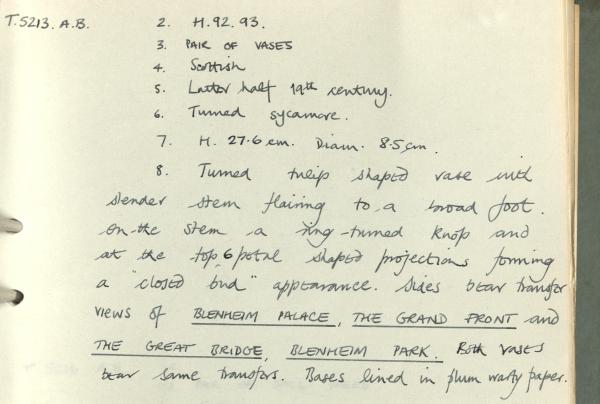 T.5213. A.B. 2. H.92.93.
3. PAIR OF VASES
4. Scottish
5. Latter half 19th century.
6. Turned sycamore.
7. H. 27.6 cm. Diam. 8.5 cm.
8. Turned tulip shaped vase with
slender stem flairing to a broad foot.
On the stem a ring-turned knop and
at the top 6 petal shaped projections forming
a "closed bud" appearance. Sides bear transfer
views of BLENHEIM PALACE, THE GRAND FRONT and
THE GREAT BRIDGE, BLENHEIM PARK. Both vases
bear same transfers. Bases lined in plum warty paper.